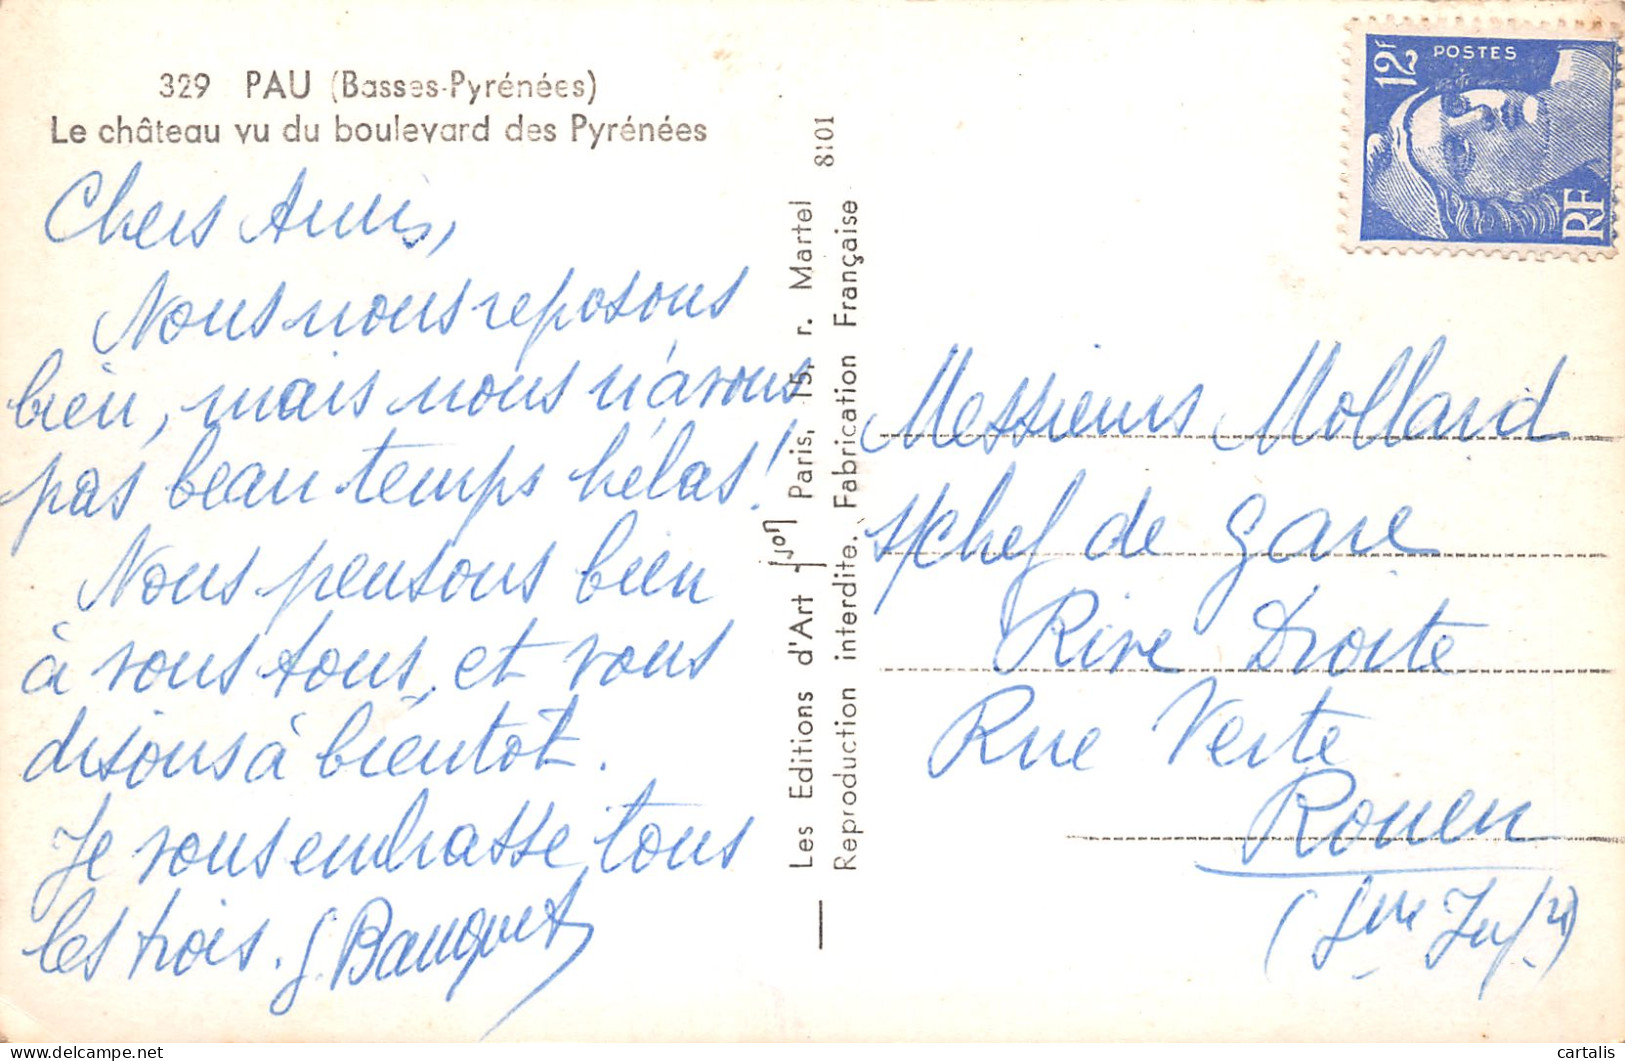 329 PAU (Basses-Pyrénées)
Le château vu du boulevard des Pyrénées
Chers Amis,
Nous nous reposons
bien, mais nous n'avons
pas beau temps hélas!
Nous pensons bien
à vous tous, et vous
disons à bientôt.
Je vous embrasse tous
les trois. G. Bauquet
Les Editions d'Art Yvon Paris, 15, r. Martel 8101
Reproduction interdite. Fabrication Française
12F
POSTES
RF
Messieurs Mollard
s/chef de Gare
Rive Droite
Rue Verte
Rouen
(Sne Infre)
cartalis